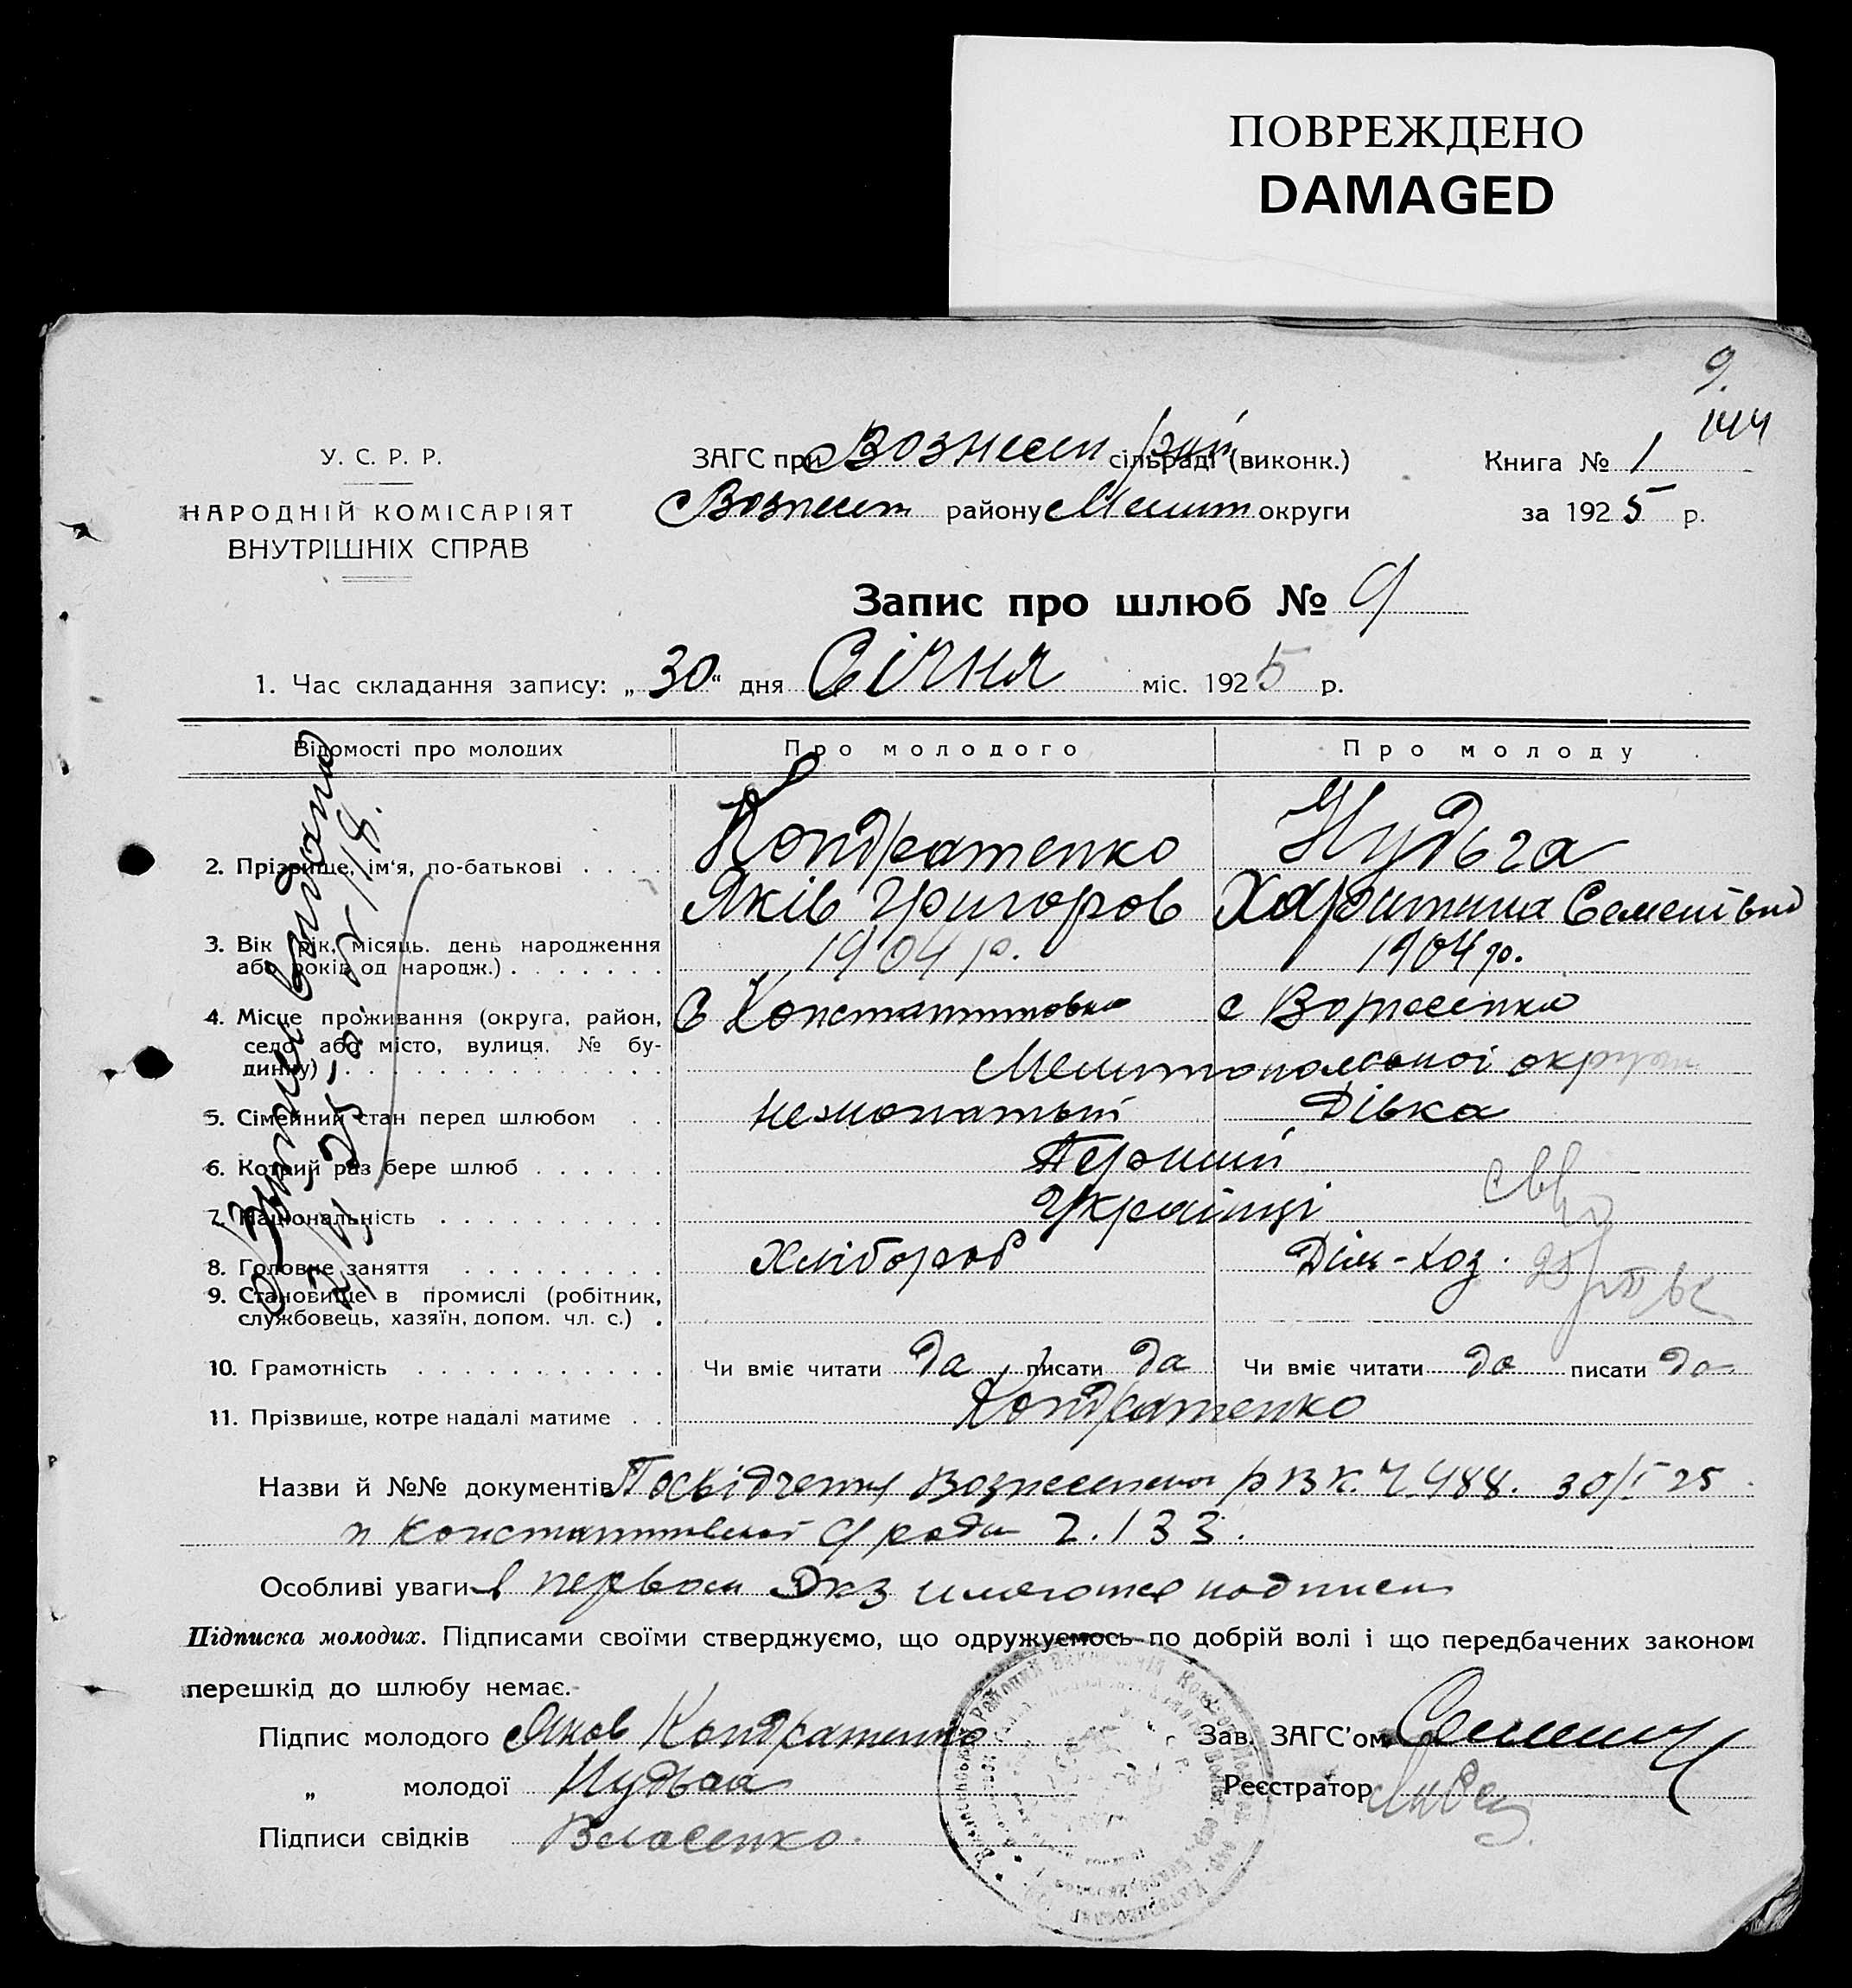 ПОВРЕЖДЕНО
DAMAGED
9.
144
У. С. Р. Р.
НАРОДНІЙ КОМІСАРІЯТ
ВНУТРІШНІХ СПРАВ
ЗАГС при Вознесен рай сільраді (виконк.)
Вознесен району Мелит округи
Книга № 1
за 1925 р.
Запис про шлюб № 9
1. Час складання запису: „30“ дня Січня міс. 1925 р.
Відомості про молодих Про молодого Про молоду
2. Прізвище, ім'я, по-батькові . . . . Кондратенко Нудьга
Яків Григоров Харитина Семенівна
3. Вік (рік, місяць. день народження
або років од народж.) . . . . . . . 1904 р. 1904 р.
4. Місце проживання (округа, район,
село або місто, вулиця. № бу-
динку) . . . . . . . . . . . . . .
С Константиновка с Вознесенка
Мелитопольської округи
5. Сімейний стан перед шлюбом . . нежонатый Дівка
6. Котрий раз бере шлюб . . . . . . Первий
7. Національність . . . . . . . . . . Українці
8. Головне заняття . . . . . . . . . Хлібороб Дім-хоз.
9. Становище в промислі (робітник,
службовець, хазяїн, допом. чл. с.) .
10. Грамотність . . . . . . . . . . . Чи вміє читати да писати да Чи вміє читати да писати да
11. Прізвище, котре надалі матиме . . Кондратенко
Назви й №№ документів Посвідчення Вознесенск РВК. Ч. 488. 30/I 25
Константинівської с/ради Ч. 133.
Особливі уваги в первом Экз имеются подписи
Підписка молодих. Підписами своїми стверджуємо, що одружуємось по добрій волі і що передбачених законом
перешкід до шлюбу немає.
Підпис молодого Яков Кондратенко
„ молодої Нудьга
Підписи свідків Власенко.
Зав. ЗАГС'ом
Реєстратор